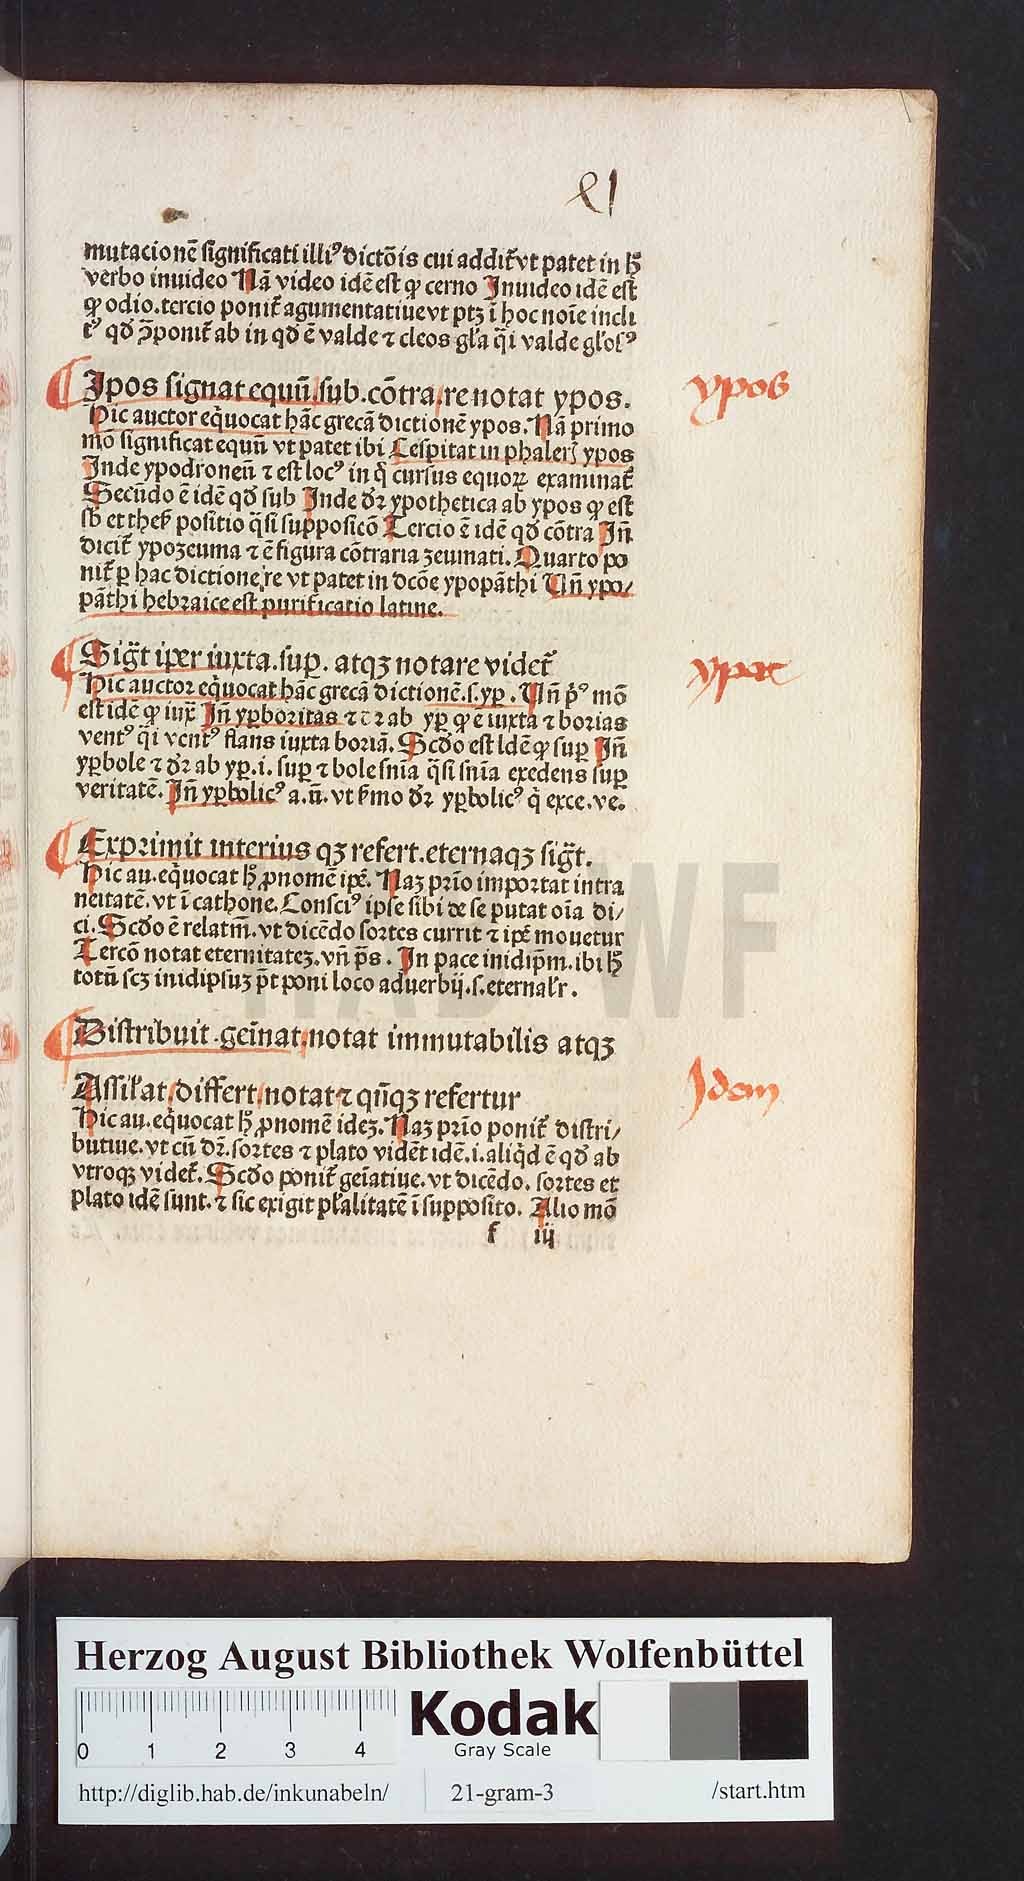 xl
mutacionē significati illiꝰ dictōis cui addit̄ vt patet in hͦ
verbo inuideo Nā video idē est ꝙ cerno Inuideo idē est
ꝙ odio. tercio ponit̄ agumentatiue vt ptꝫ ī hoc noīe incli
tꝰ qđ ꝓponit̄ ab in qđ ē valde ⁊ cleos gl̄a q̄i valde gl̄osꝰ
Ipos signat equū sub. cōtra re notat ypos.
ypos
Hic auctor eq̄uocat hāc grecā dictionē ypos. Nā primo
mō significat equū vt patet ibi Cespitat in phalerꝭ ypos
Inde ypodroneū ⁊ est locꝰ in q̊ cursus equoꝝ examinat̄
Secūdo ē idē qđ sub Inde dꝛ̄ ypothetica ab ypos ꝙ est
sb et thes̄ positio q̄si supposicō Tercio ē idē qđ cōtra Iñ
dicit̄ ypozeuma ⁊ ē figura cōtraria zeumati. Quarto po
nit̄ ꝑ hac dictione re vt patet in dcōe ypopāthi Uñ ypo/
pāthi hebraice est purificatio latine.
Sigt̄ iper iuxta. suꝑ. atqꝫ notare videt̄
yper
Hic auctor eq̄uocat hāc grecā dictionē. s. yꝑ. Uñ p̄ꝰ mō
est idē ꝙ iux̄ Iñ yꝑboritas ⁊ dꝛ ab yꝑ ꝙ e iuxta ⁊ borias
ventꝰ q̄i ventꝰ flans iuxta boriā. Scđo est idē ꝙ suꝑ Iñ
yꝑbole ⁊ dꝛ̄ ab yꝑ. i. suꝑ ⁊ bole snīa q̄si snīa exedens suꝑ
veritatē. Iñ yꝑbolicꝰ a. ū. vt s̄mo dꝛ̄ yꝑbolicꝰ q̇ exce. ve.
Exprimit interius qꝫ refert. eternaqꝫ sigt̄.
Hic au. eq̄uocat hͦ ꝓnomē ip̄e. Naꝫ prīo importat intra
neitatē. vt ī cathone. Consciꝰ ipse sibi de se putat oīa di/
ci. Scđo ē relatm̄. vt dicēdo sortes currit ⁊ ip̄e mouetur
Tercō notat eternitateꝫ. vñ p̄s. In pace inidip̄m. ibi hͦ
totū scꝫ inidipsuꝫ p̄t poni loco aduerbij. s. eternal̄r.
Distribuit. gem̄nat notat immutabilis atqꝫ
Assil̄at differt notat ⁊ qn̄qꝫ refertur
Idem
Hic au. eq̄uocat hͦ ꝓnomē ideꝫ. Naꝫ prīo ponit̄ distri/
butiue. vt cū dꝛ̄. sortes ⁊ plato vidēt idē. i. aliq̇d ē qđ ab
vtroqꝫ videt̄. Scđo ponit̄ geīatiue. vt dicēdo. sortes et
plato idē sunt. ⁊ sic exigit pl̄alitatē ī supposito. Alio mō
f iij
HAB WF
Herzog August Bibliothek Wolfenbüttel
0 1 2 3 4
Kodak
Gray Scale
http://diglib.hab.de/inkunabeln/ 21-gram-3 /start.htm